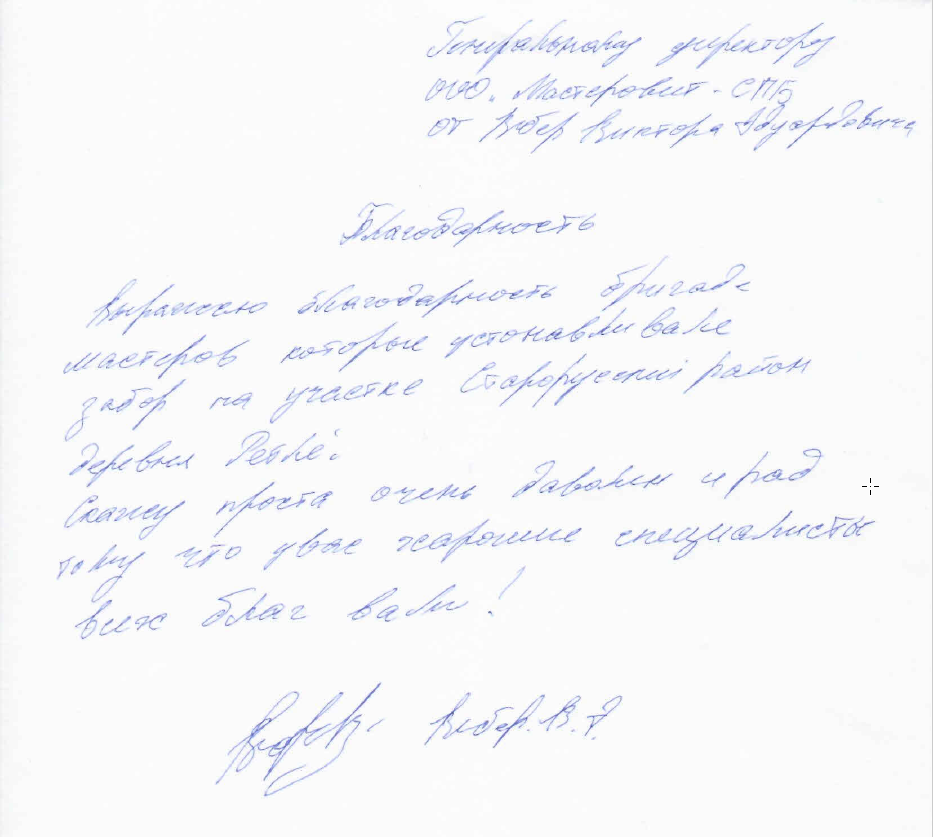 Генеральному директору
ООО „Мастеровит - СПб
от Вебер Виктора Эдуардовича
Благодарность
Выражаю благодарность бригаде
мастеров которые устонавливале
забор на участке Старорусский район
деревня Ретлё.
Скажу проста очень даволен и рад
тому что увас харошие специалисты
всех благ вам!
Вебер. В. Э.